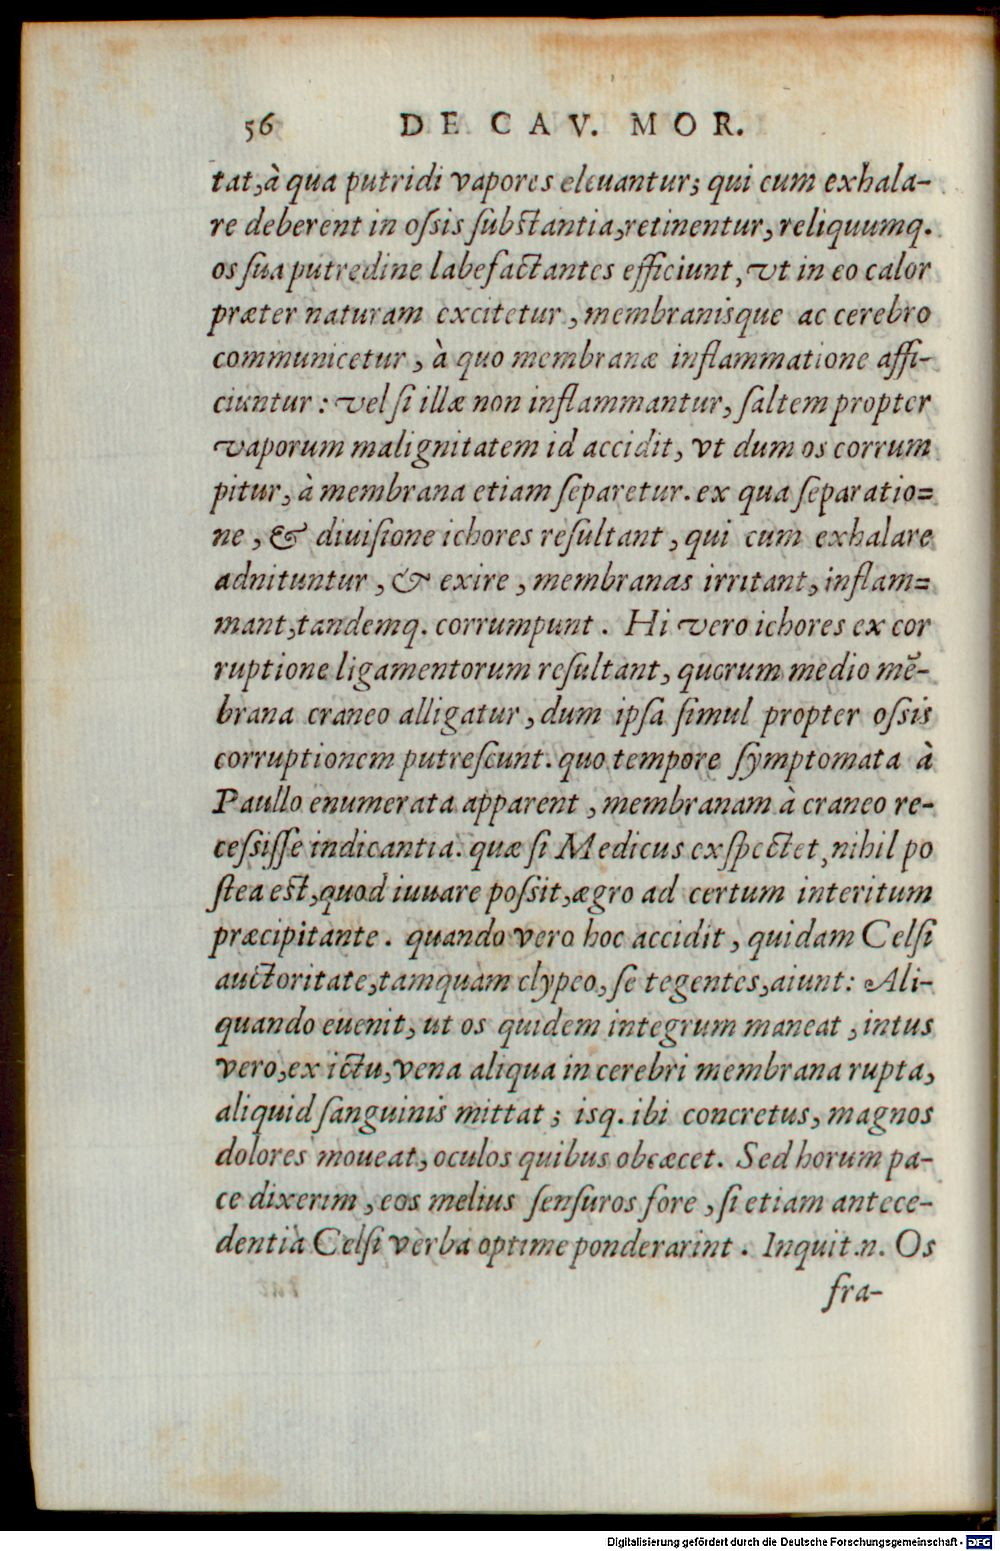 56 DE CAV. MOR.
tat, à qua putridi vapores eleuantur; qui cum exhala-
re deberent in oſsis ſubstantia, retinentur, reliquumq.
os ſua putredine labefactantes efficiunt, vt in eo calor
præter naturam excitetur, membranisque ac cerebro
communicetur, à quo membranæ inflammatione affi-
ciuntur: vel ſi illæ non inflammantur, ſaltem propter
vaporum malignitatem id accidit, vt dum os corrum
pitur, à membrana etiam ſeparetur. ex qua ſeparatio=
ne, & diuiſione ichores reſultant, qui cum exhalare
adnituntur, & exire, membranas irritant, inflam=
mant, tandemq. corrumpunt. Hi vero ichores ex cor
ruptione ligamentorum reſultant, quorum medio mē-
brana craneo alligatur, dum ipſa ſimul propter oſsis
corruptionem putreſcunt. quo tempore ſymptomata à
Paullo enumerata apparent, membranam à craneo re-
ceſsiſſe indicantia. quæ ſi Medicus exſpectet, nihil po
ſtea est, quod iuuare poſsit, ægro ad certum interitum
præcipitante. quando vero hoc accidit, quidam Celſi
auctoritate, tamquam clypeo, ſe tegentes, aiunt: Ali-
quando euenit, ut os quidem integrum maneat, intus
vero, ex ictu, vena aliqua in cerebri membrana rupta,
aliquid ſanguinis mittat; isq. ibi concretus, magnos
dolores moueat, oculos quibus obcæcet. Sed horum pa-
ce dixerim, eos melius ſenſuros fore, ſi etiam antece-
dentia Celſi verba optime ponderarint. Inquit .n. Os
fra-
Digitalisierung gefördert durch die Deutsche Forschungsgemeinschaft - DFG